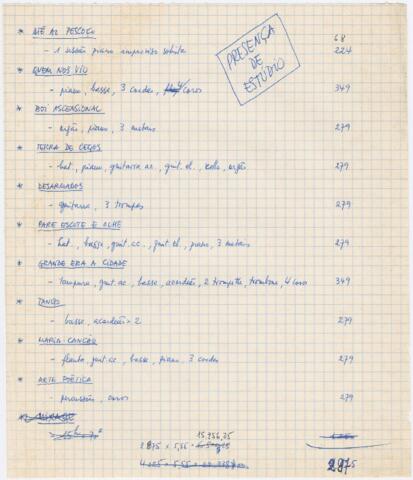 * ATÉ AO PESCOÇO 68
- 1 sessão piano improviso solista 224
PRESENÇA
DE
ESTÚDIO
* QUEM NOS VIU
- piano, basse, 3 cordas, coros 349
* BOI ASCENSIONAL
- orgão, piano, 3 metais 279
* TERRA DE CEGOS
- bat, piano, guitarra ac., guit. el., orgão 279
* DESARMADOS
- guitarra, 3 trompas 279
* PARE ESCUTE E OLHE
- bat., basse, guit. ac., guit. el., piano, 3 metais 279
* GRANDE ERA A CIDADE
- guit. ac, basse, acordeão, 2 trompete, trombone, 4 coros 349
* TANGO
- basse, acordeão = 2 279
* MARIA
- flauta, guit. ac, basse, piano, 3 cordas 279
* ARTE POÉTICA
- percussão, coros 279
15.956,25
2875 x 5,55
2875